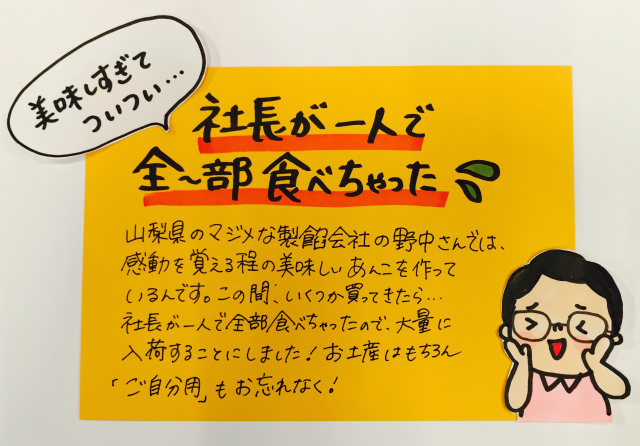 美味しすぎて
ついつい…
社長が一人で
全〜部食べちゃった
山梨県のマジメな製餡会社の野中さんでは、
感動を覚える程の美味しいあんこを作って
いるんです。この間、いくつか買ってきたら…
社長が一人で全部食べちゃったので、大量に
入荷することにしました！お土産はもちろん
「ご自分用」もお忘れなく！